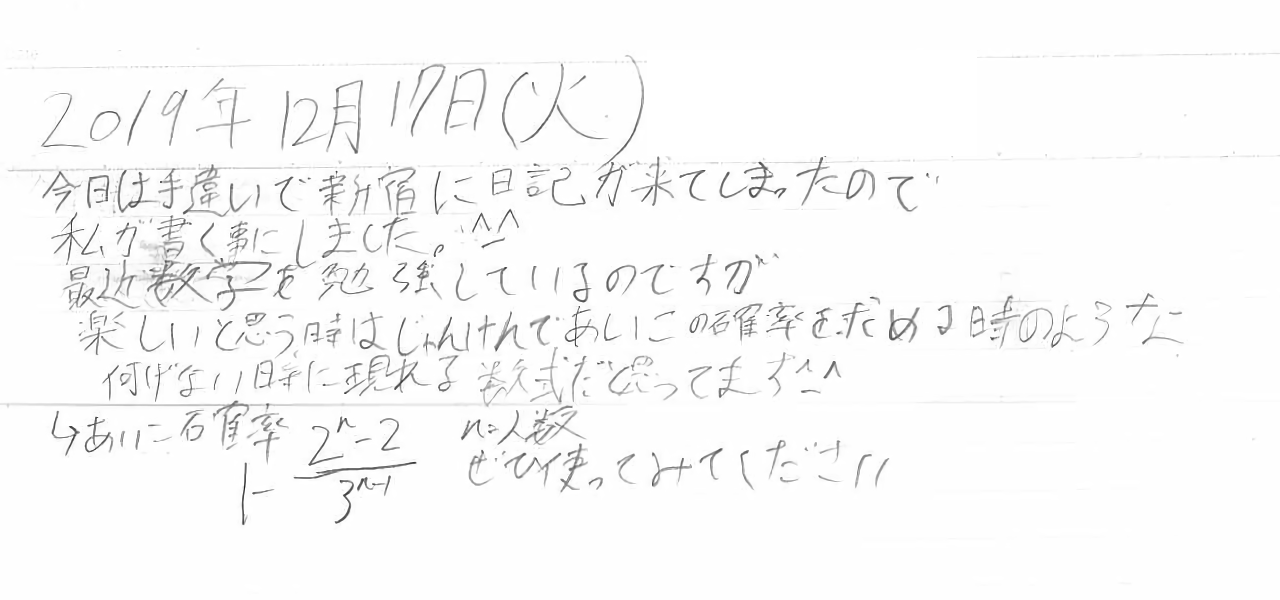 2019年12月17日(火)
今日は手違いで新宿に日記が来てしまったので
私が書く事にしました。^_^
最近数学を勉強しているのですが
楽しいと思う時はじゃんけんであいこの確率を求める時のような
何げない時に現れる数式だと思ってます^_^
↳あいこ確率 1-\frac{2^n-2}{3^{n-1}} n=人数
ぜひ使ってみてください